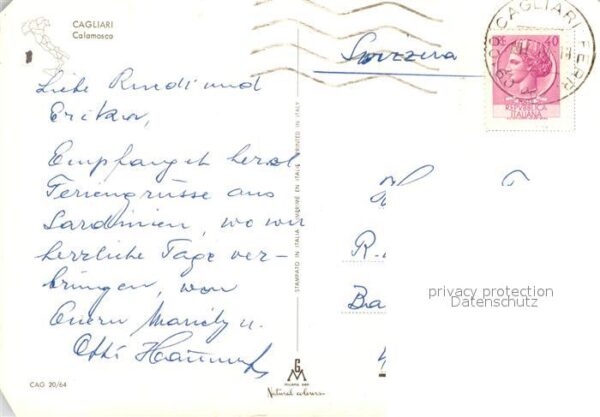 CAGLIARI
Calamosca
Svizzera
CAGLIARI FERR
40
REPVBBLICA
ITALIANA
Liebe Ruedi und
Erika,
Empfanget herzl
Feriengrüsse aus
Sardinien, wo wir
herzliche Tage ver-
bringen, von
Euern
Otti
H
R.
Ba
privacy protection
Datenschutz
STAMPATO IN ITALIA IMPRIMÉ EN ITALIE PRINTED IN ITALY
G
M
Natural colours
CAG 20/64